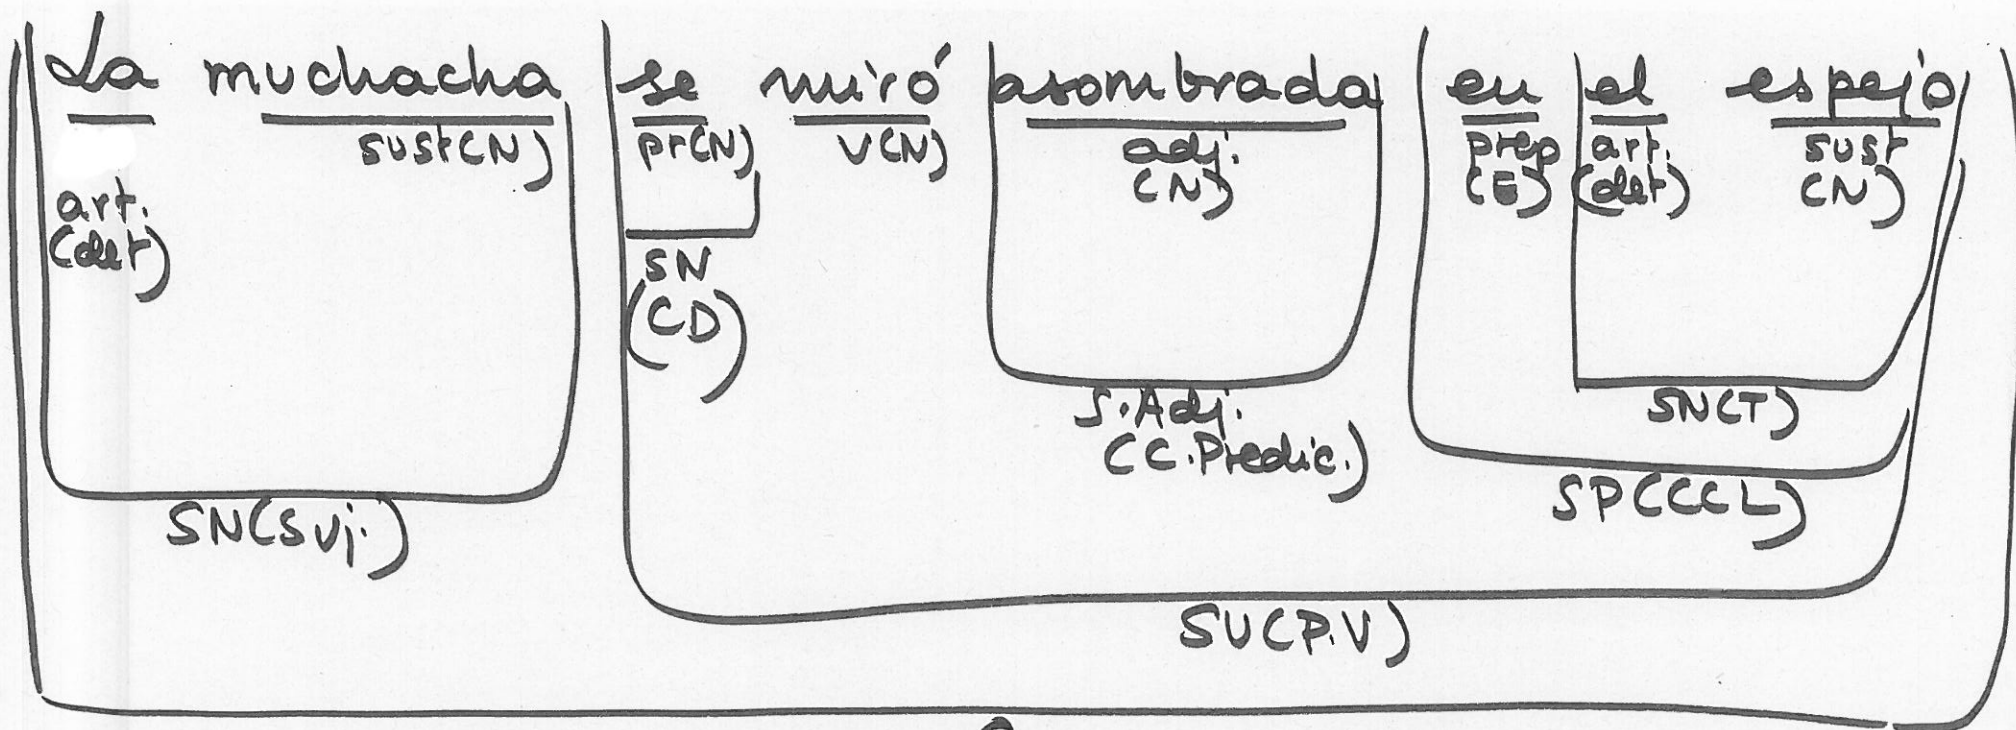 La muchacha se miró asombrada en el espejo
art. (det) sust(N) pr(N) V(N) adj. (N) prep (E) art. (det) sust (N)
SN (CD)
S.Adj. (C.Predic.) SN(T)
SN(Suj.) SP(CCL)
SV(P.V)